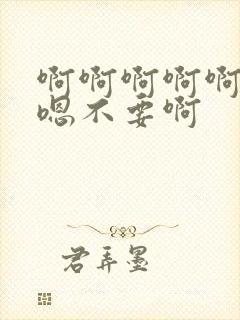 啊啊啊啊啊
嗯不要啊
君弄墨